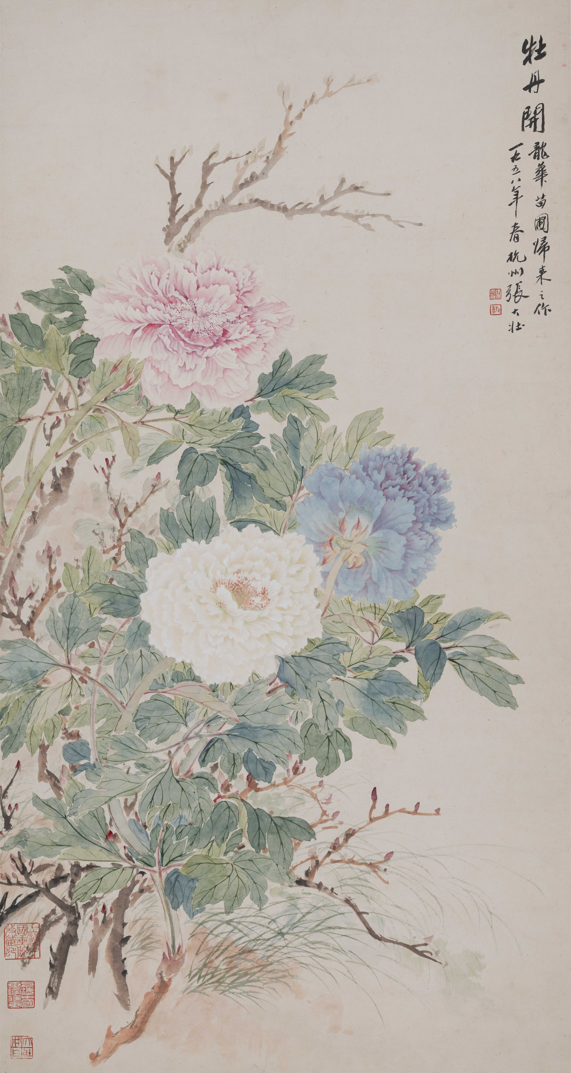 牡丹開
龍華苗圃歸來之作
一九五八年春杭州張大壯